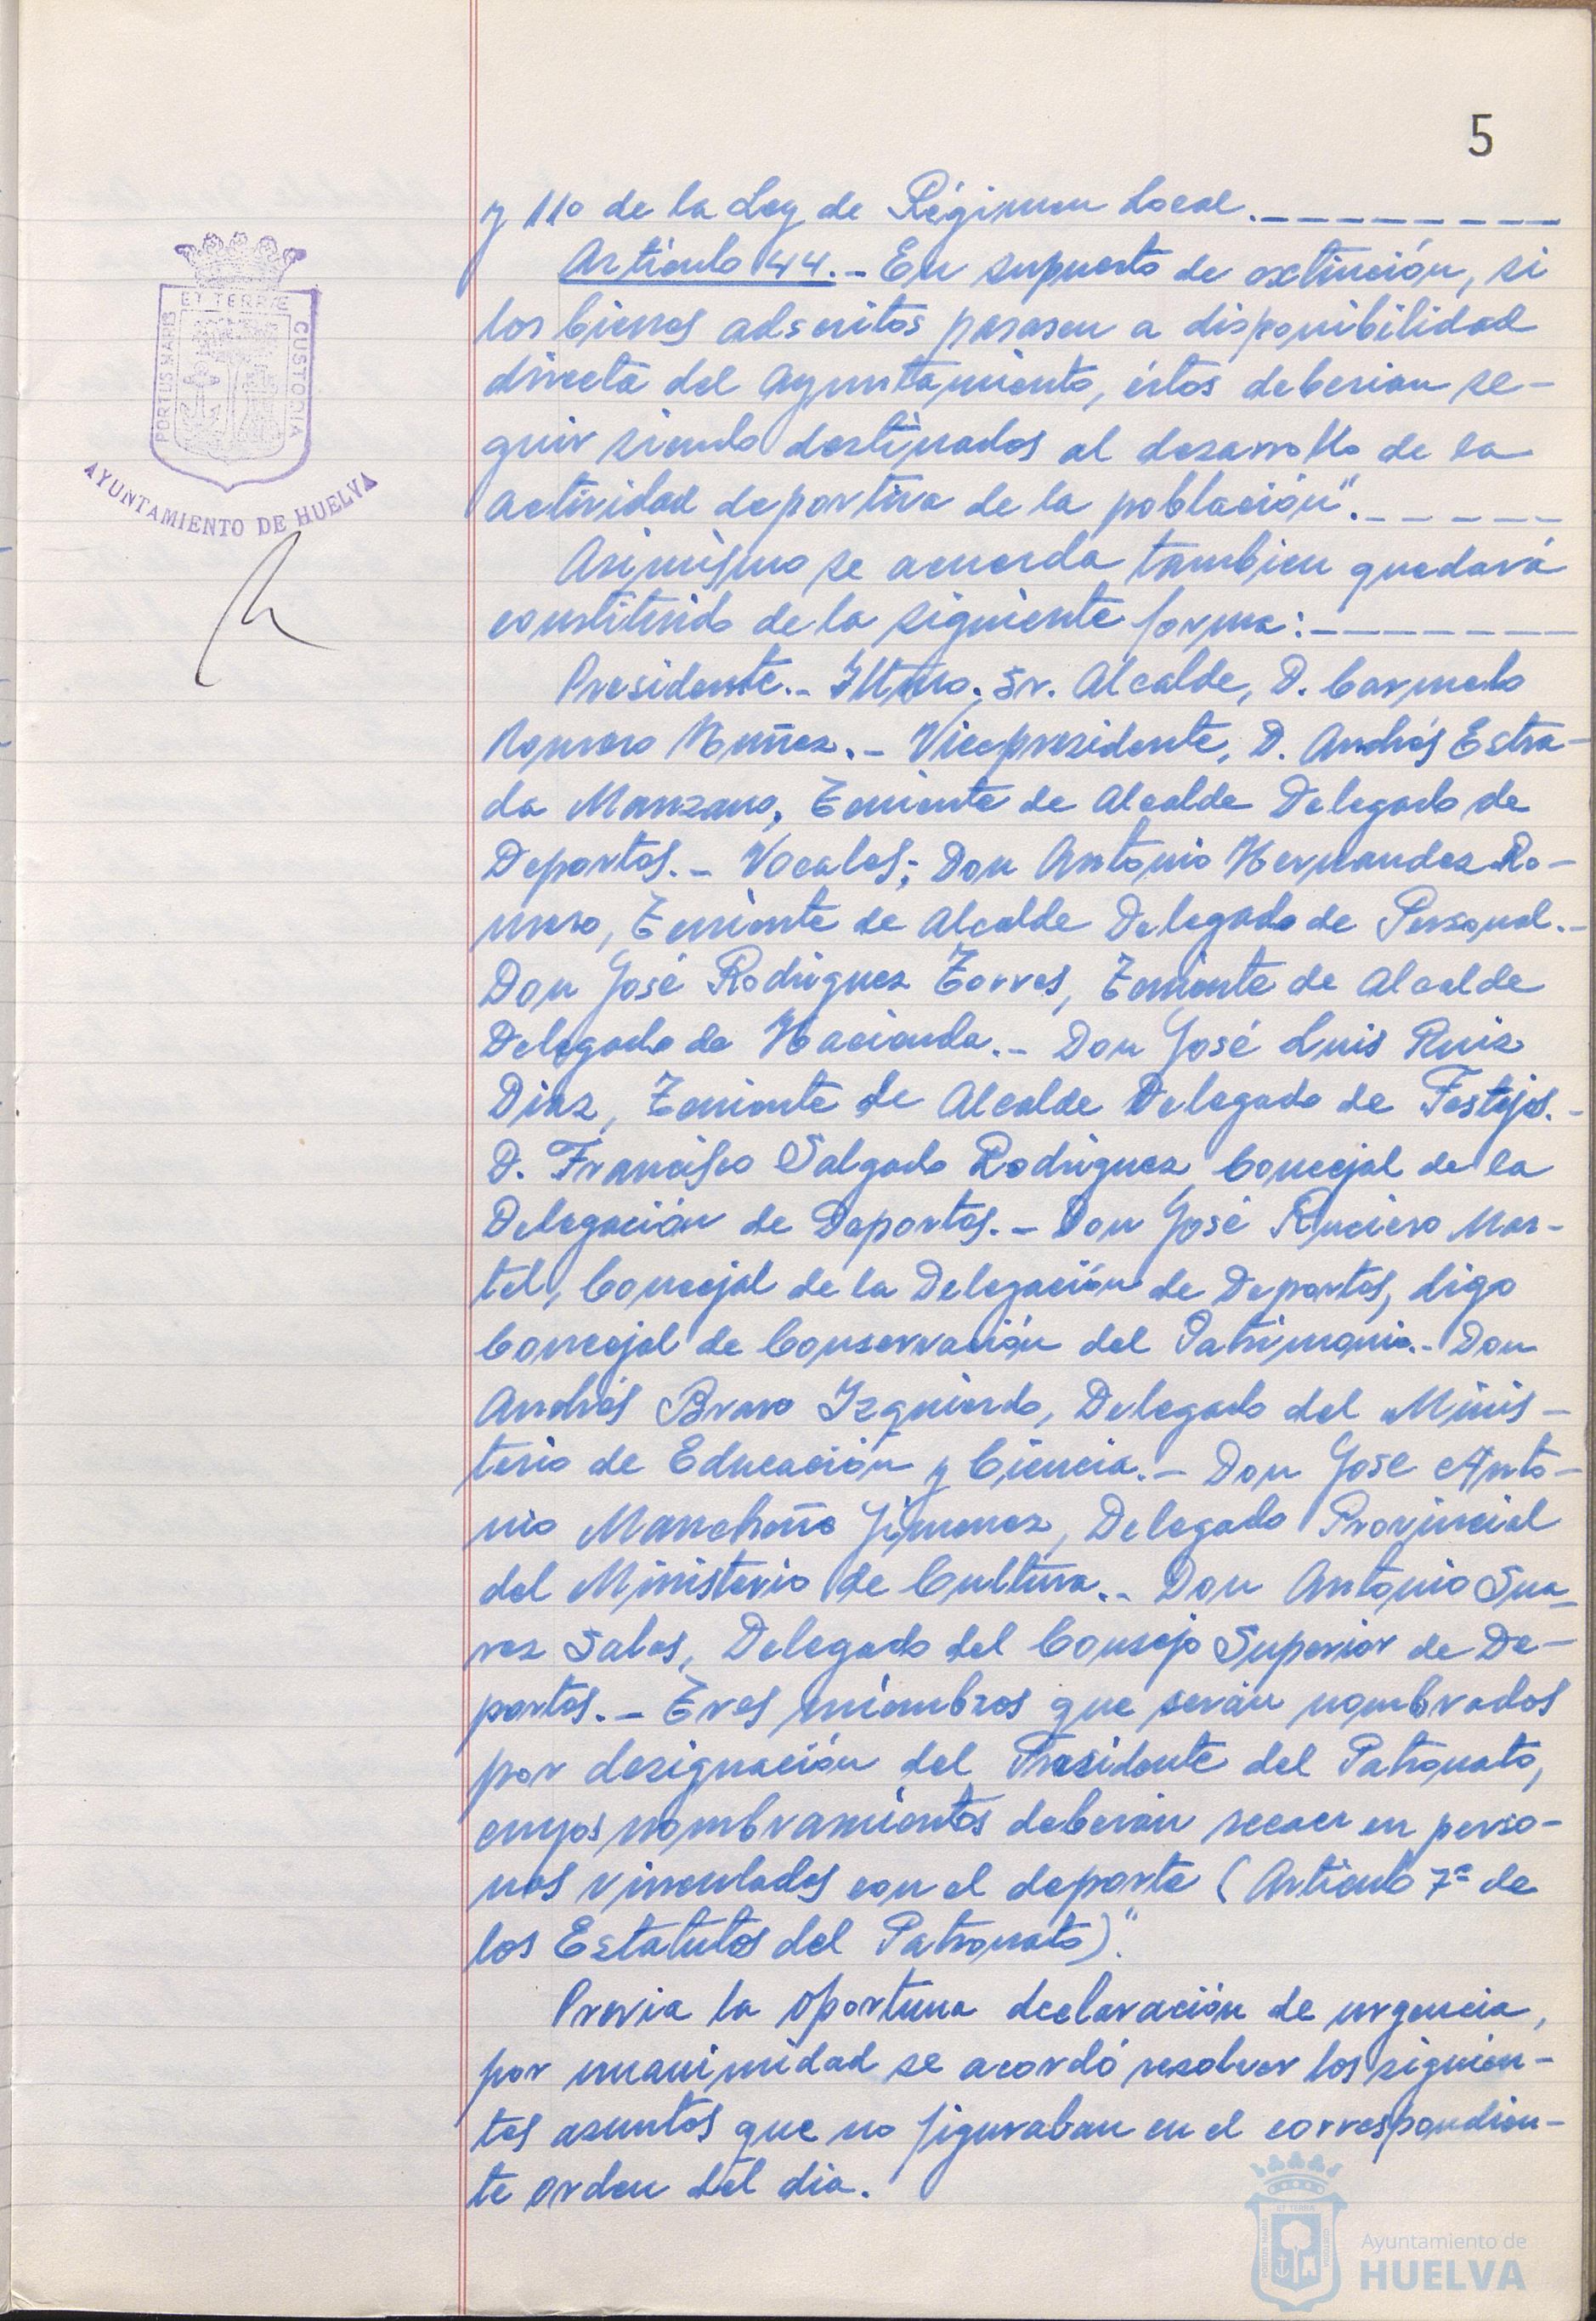 5
y 110 de la Ley de Régimen Local.
Artículo 44.- En supuesto de extinción, si
los bienes adscritos pasasen a disponibilidad
directa del Ayuntamiento, éstos deberian se-
guir siendo destinados al desarrollo de la
actividad deportiva de la población".
Asimismo se acuerda tambien quedará
constituido de la siguiente forma:
Presidente.- Iltmo. Sr. Alcalde, D. Carmelo
Romero Nuñez.- Vicepresidente, D. Andrés Estra-
da Manzano, Teniente de Alcalde Delegado de
Deportes.- Vocales; Don Antonio Hernandez Ro-
mero, Teniente de Alcalde Delegado de Personal.-
Don José Rodriguez Torres, Teniente de Alcalde
Delegado de Hacienda.- Don José Luis Ruiz
Diaz, Teniente de Alcalde Delegado de Festejos.-
D. Francisco Salgado Rodriguez, Concejal de la
Delegación de Deportes.- Don José Ruciero Mar-
tel, Concejal de la Delegación de Deportes, digo
Concejal de Conservación del Patrimonio.- Don
Andrés Bravo Izquierdo, Delegado del Minis-
terio de Educación y Ciencia.- Don José Anto-
nio Mancheño Jimenez, Delegado Provincial
del Ministerio de Cultura.- Don Antonio Sua-
rez Sales, Delegado del Consejo Superior de De-
portes.- Tres miembros que serán nombrados
por designación del Presidente del Patronato,
cuyos nombramientos deberán recaer en perso-
nas vinculadas con el deporte (Artículo 7º de
los Estatutos del Patronato)".
Previa la oportuna declaración de urgencia,
por unanimidad se acordó resolver los siguien-
tes asuntos que no figuraban en el correspondien-
te orden del dia.
PORTUS MARIS ET TERRÆ CUSTODIA
AYUNTAMIENTO DE HUELVA
Ayuntamiento de
HUELVA